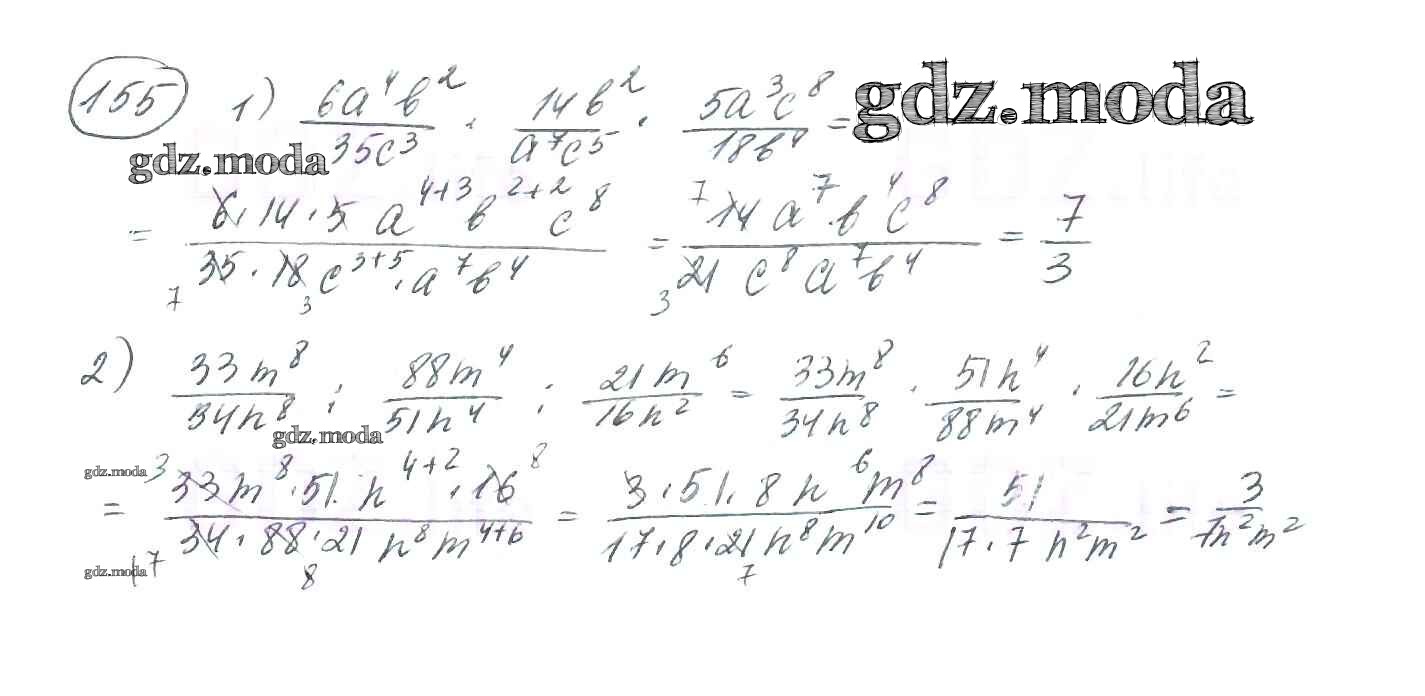 155 1) 6a⁴b²/35c³ · 14b²/a⁷c⁵ · 5a³c⁸/18b⁴ = gdz.moda
gdz.moda
= 6·14·5 a⁴⁺³ b²⁺² c⁸ / 35·18 c³⁺⁵·a⁷b⁴ = 14 a⁷·b⁴ c⁸ / 21 c⁸ a⁷ b⁴ = 7/3
7 3 7 3
2) 33m⁸/34n⁸ : 88m⁴/51n⁴ : 21m⁶/16n² = 33m⁸/34n⁸ · 51n⁴/88m⁴ · 16n²/21m⁶ =
gdz.moda
gdz.moda
= 33m⁸·51·n⁴⁺²·16 / 34·88·21 n⁸m⁴⁺⁶ = 3·51·8 n⁶m⁸ / 17·8·21n⁸m¹⁰ = 51 / 17·7 n²m² = 3 / 7n²m²
3 8 17 8 7
gdz.moda